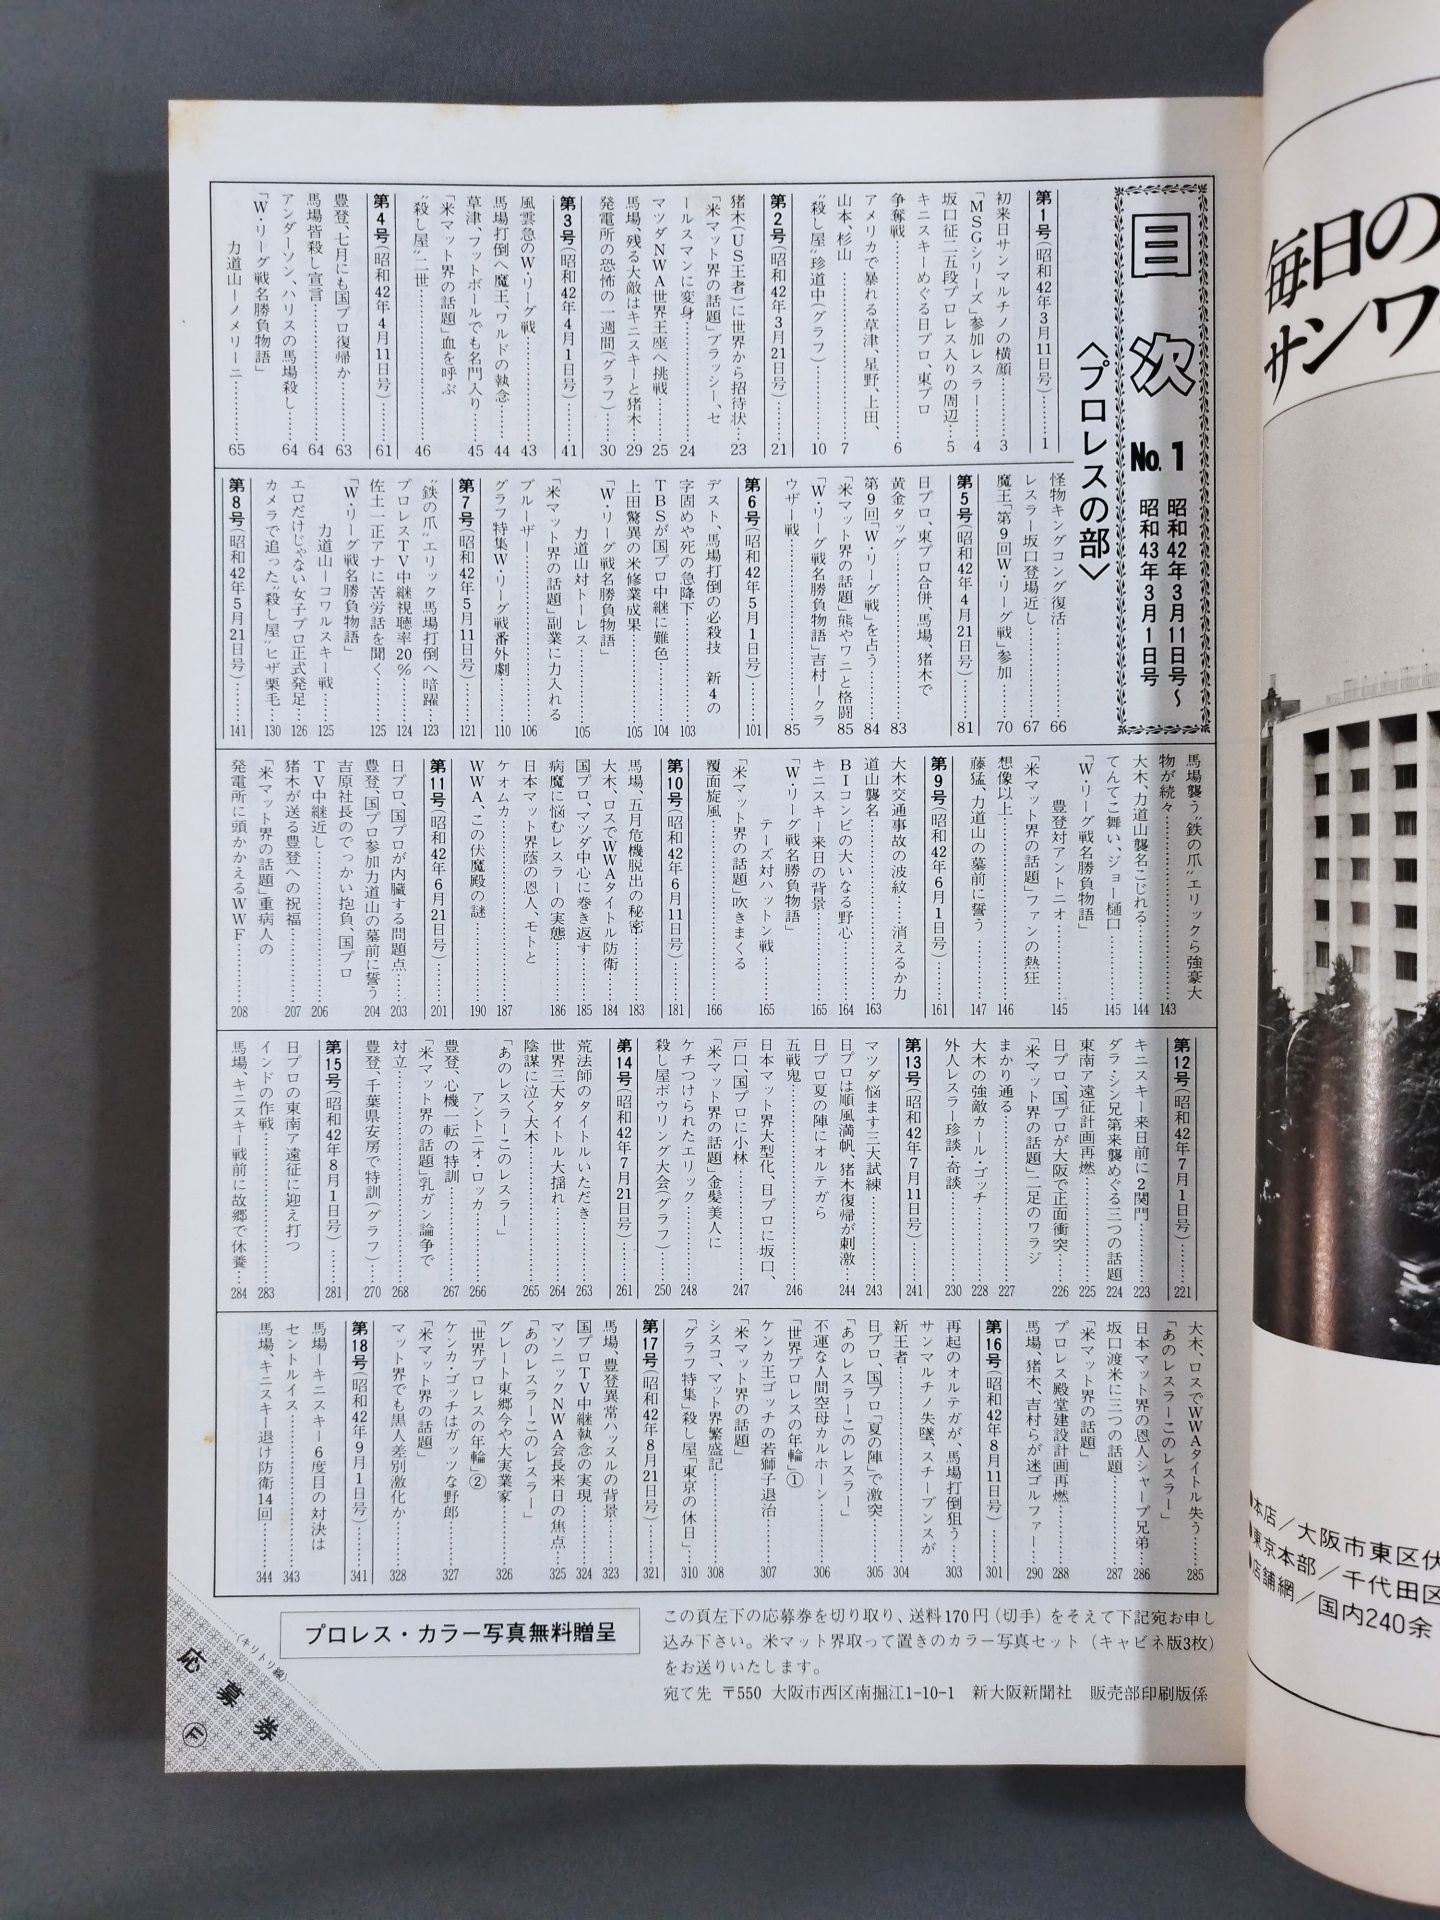 目次
No.1
昭和42年3月11日号〜
昭和43年3月1日号
〈プロレスの部〉
第1号(昭和42年3月11日号)……1
初来日サンマルチノの横顔……3
「MSGシリーズ」参加レスラー……4
坂口征二五段プロレス入りの周辺…5
キニスキーめぐる日プロ、東プロ
争奪戦……6
アメリカで暴れる草津、星野、上田、
山本、杉山……7
“殺し屋”珍道中(グラフ)……10
第2号(昭和42年3月21日号)……21
猪木(US王者)に世界から招待状…23
「米マット界の話題」ブラッシー、セ
ールスマンに変身……24
マツダNWA世界王座へ挑戦……25
馬場、残る大敵はキニスキーと猪木…29
発電所の恐怖の一週間(グラフ)…30
第3号(昭和42年4月1日号)……41
風雲急のW・リーグ戦……43
馬場打倒へ魔王、ワルドの執念…44
草津、フットボールでも名門入り…45
「米マット界の話題」血を呼ぶ
“殺し屋”二世……46
第4号(昭和42年4月11日号)……61
豊登、七月にも国プロ復帰か……63
馬場皆殺し宣言……64
アンダーソン、ハリスの馬場殺し…64
「W・リーグ戦名勝負物語」
力道山ーノメリーニ……65
怪物キングコング復活……66
レスラー坂口登場近し……67
魔王「第9回W・リーグ戦」参加……70
第5号(昭和42年4月21日号)……81
日プロ、東プロ合併、馬場、猪木で
黄金タッグ……83
第9回「W・リーグ戦」を占う……84
「米マット界の話題」熊やワニと格闘 85
「W・リーグ戦名勝負物語」吉村ークラ
ウザー戦……85
第6号(昭和42年5月1日号)……101
デスト、馬場打倒の必殺技　新4の
字固めや死の急降下……103
TBSが国プロ中継に難色……104
上田驚異の米修業成果……105
「W・リーグ戦名勝負物語」
力道山対トーレス……105
「米マット界の話題」副業に力入れる
ブルーザー……106
グラフ特集W・リーグ戦番外劇……110
第7号(昭和42年5月11日号)……121
“鉄の爪”エリック馬場打倒へ暗躍…123
プロレスTV中継視聴率20%……124
佐土一正アナに苦労話を聞く……125
「W・リーグ戦名勝負物語」
力道山ーコワルスキー戦……125
エロだけじゃない女子プロ正式発足…126
カメラで追った“殺し屋”ヒザ栗毛…130
第8号(昭和42年5月21日号)……141
馬場襲う“鉄の爪”エリックら強豪大
物が続々……143
大木、力道山襲名こじれる……144
てんてこ舞い、ジョー樋口……145
「W・リーグ戦名勝負物語」
豊登対アントニオ……145
「米マット界の話題」ファンの熱狂
想像以上……146
藤猛、力道山の墓前に誓う……147
第9号(昭和42年6月1日号)……161
大木交通事故の波紋……消えるか力
道山襲名……163
BIコンビの大いなる野心……164
キニスキー来日の背景……165
「W・リーグ戦名勝負物語」
テーズ対ハットン戦……165
「米マット界の話題」吹きまくる
覆面旋風……166
第10号(昭和42年6月11日号)……181
馬場、五月危機脱出の秘密……183
大木、ロスでWWAタイトル防衛…184
国プロ、マツダ中心に巻き返す…185
病魔に悩むレスラーの実態……186
日本マット界蔭の恩人、モトと
ケオムカ……187
WWA、この伏魔殿の謎……190
第11号(昭和42年6月21日号)……201
日プロ、国プロが内臓する問題点…203
豊登、国プロ参加力道山の墓前に誓う 204
吉原社長のでっかい抱負、国プロ
TV中継近し……206
猪木が送る豊登への祝福……207
「米マット界の話題」重病人の
発電所に頭かかえるWWF……208
第12号(昭和42年7月1日号)……221
キニスキー来日前に2関門……223
ダラ・シン兄弟来襲めぐる三つの話題 224
東南ア遠征計画再燃……225
日プロ、国プロが大阪で正面衝突…226
「米マット界の話題」二足のワラジ
まかり通る……227
大木の強敵カール・ゴッチ……228
外人レスラー珍談・奇談……230
第13号(昭和42年7月11日号)……241
マツダ悩ます三大試練……243
日プロは順風満帆、猪木復帰が刺激 244
日プロ夏の陣にオルテガら
五戦鬼……246
日本マット界大型化、日プロに坂口、
戸口、国プロに小林……247
「米マット界の話題」金髪美人に
ケチつけられたエリック……248
殺し屋ボウリング大会(グラフ)…250
第14号(昭和42年7月21日号)……261
荒法師のタイトルいただき……263
世界三大タイトル大揺れ……264
陰謀に泣く大木……265
「あのレスラーこのレスラー」
アントニオ・ロッカ……266
豊登、心機一転の特訓……267
「米マット界の話題」乳ガン論争で
対立……268
豊登、千葉県安房で特訓(グラフ)…270
第15号(昭和42年8月1日号)……281
日プロの東南ア遠征に迎え打つ
インドの作戦……283
馬場、キニスキー戦前に故郷で休養…284
大木、ロスでWWAタイトル失う…285
「あのレスラーこのレスラー」
日本マット界の恩人シャープ兄弟…286
坂口渡米に三つの話題……287
「米マット界の話題」
プロレス殿堂建設計画再燃……288
馬場、猪木、吉村らが迷ゴルファー…290
第16号(昭和42年8月11日号)……301
再起のオルテガが、馬場打倒狙う…303
サンマルチノ失墜、スチーブンスが
新王者……304
日プロ、国プロ「夏の陣」で激突…305
「あのレスラーこのレスラー」
不運な人間空母カルホーン……306
「世界プロレスの年輪」①
ケンカ王ゴッチの若獅子退治……307
「米マット界の話題」
シスコ、マット界繁盛記……308
「グラフ特集」殺し屋「東京の休日」…310
第17号(昭和42年8月21日号)……321
馬場、豊登異常ハッスルの背景…323
国プロTV中継執念の実現……324
マソニックNWA会長来日の焦点…325
「あのレスラーこのレスラー」
グレート東郷今や大実業家……326
「世界プロレスの年輪」②
ケンカ・ゴッチはガッツな野郎…327
「米マット界の話題」
マット界でも黒人差別激化か……328
第18号(昭和42年9月1日号)……341
馬場ーキニスキー6度目の対決は
セントルイス……343
馬場、キニスキー退け防衛14回…344
プロレス・カラー写真無料贈呈
この頁左下の応募券を切り取り、送料170円(切手)をそえて下記宛お申し
込み下さい。米マット界取って置きのカラー写真セット(キャビネ版3枚)
をお送りいたします。
宛て先　〒550　大阪市西区南掘江1-10-1　新大阪新聞社　販売部印刷版係
(キリトリ線)
応募券
F
毎日の
サンワ
●本店／大阪市東区伏
●東京本部／千代田区
●店舗網／国内240余